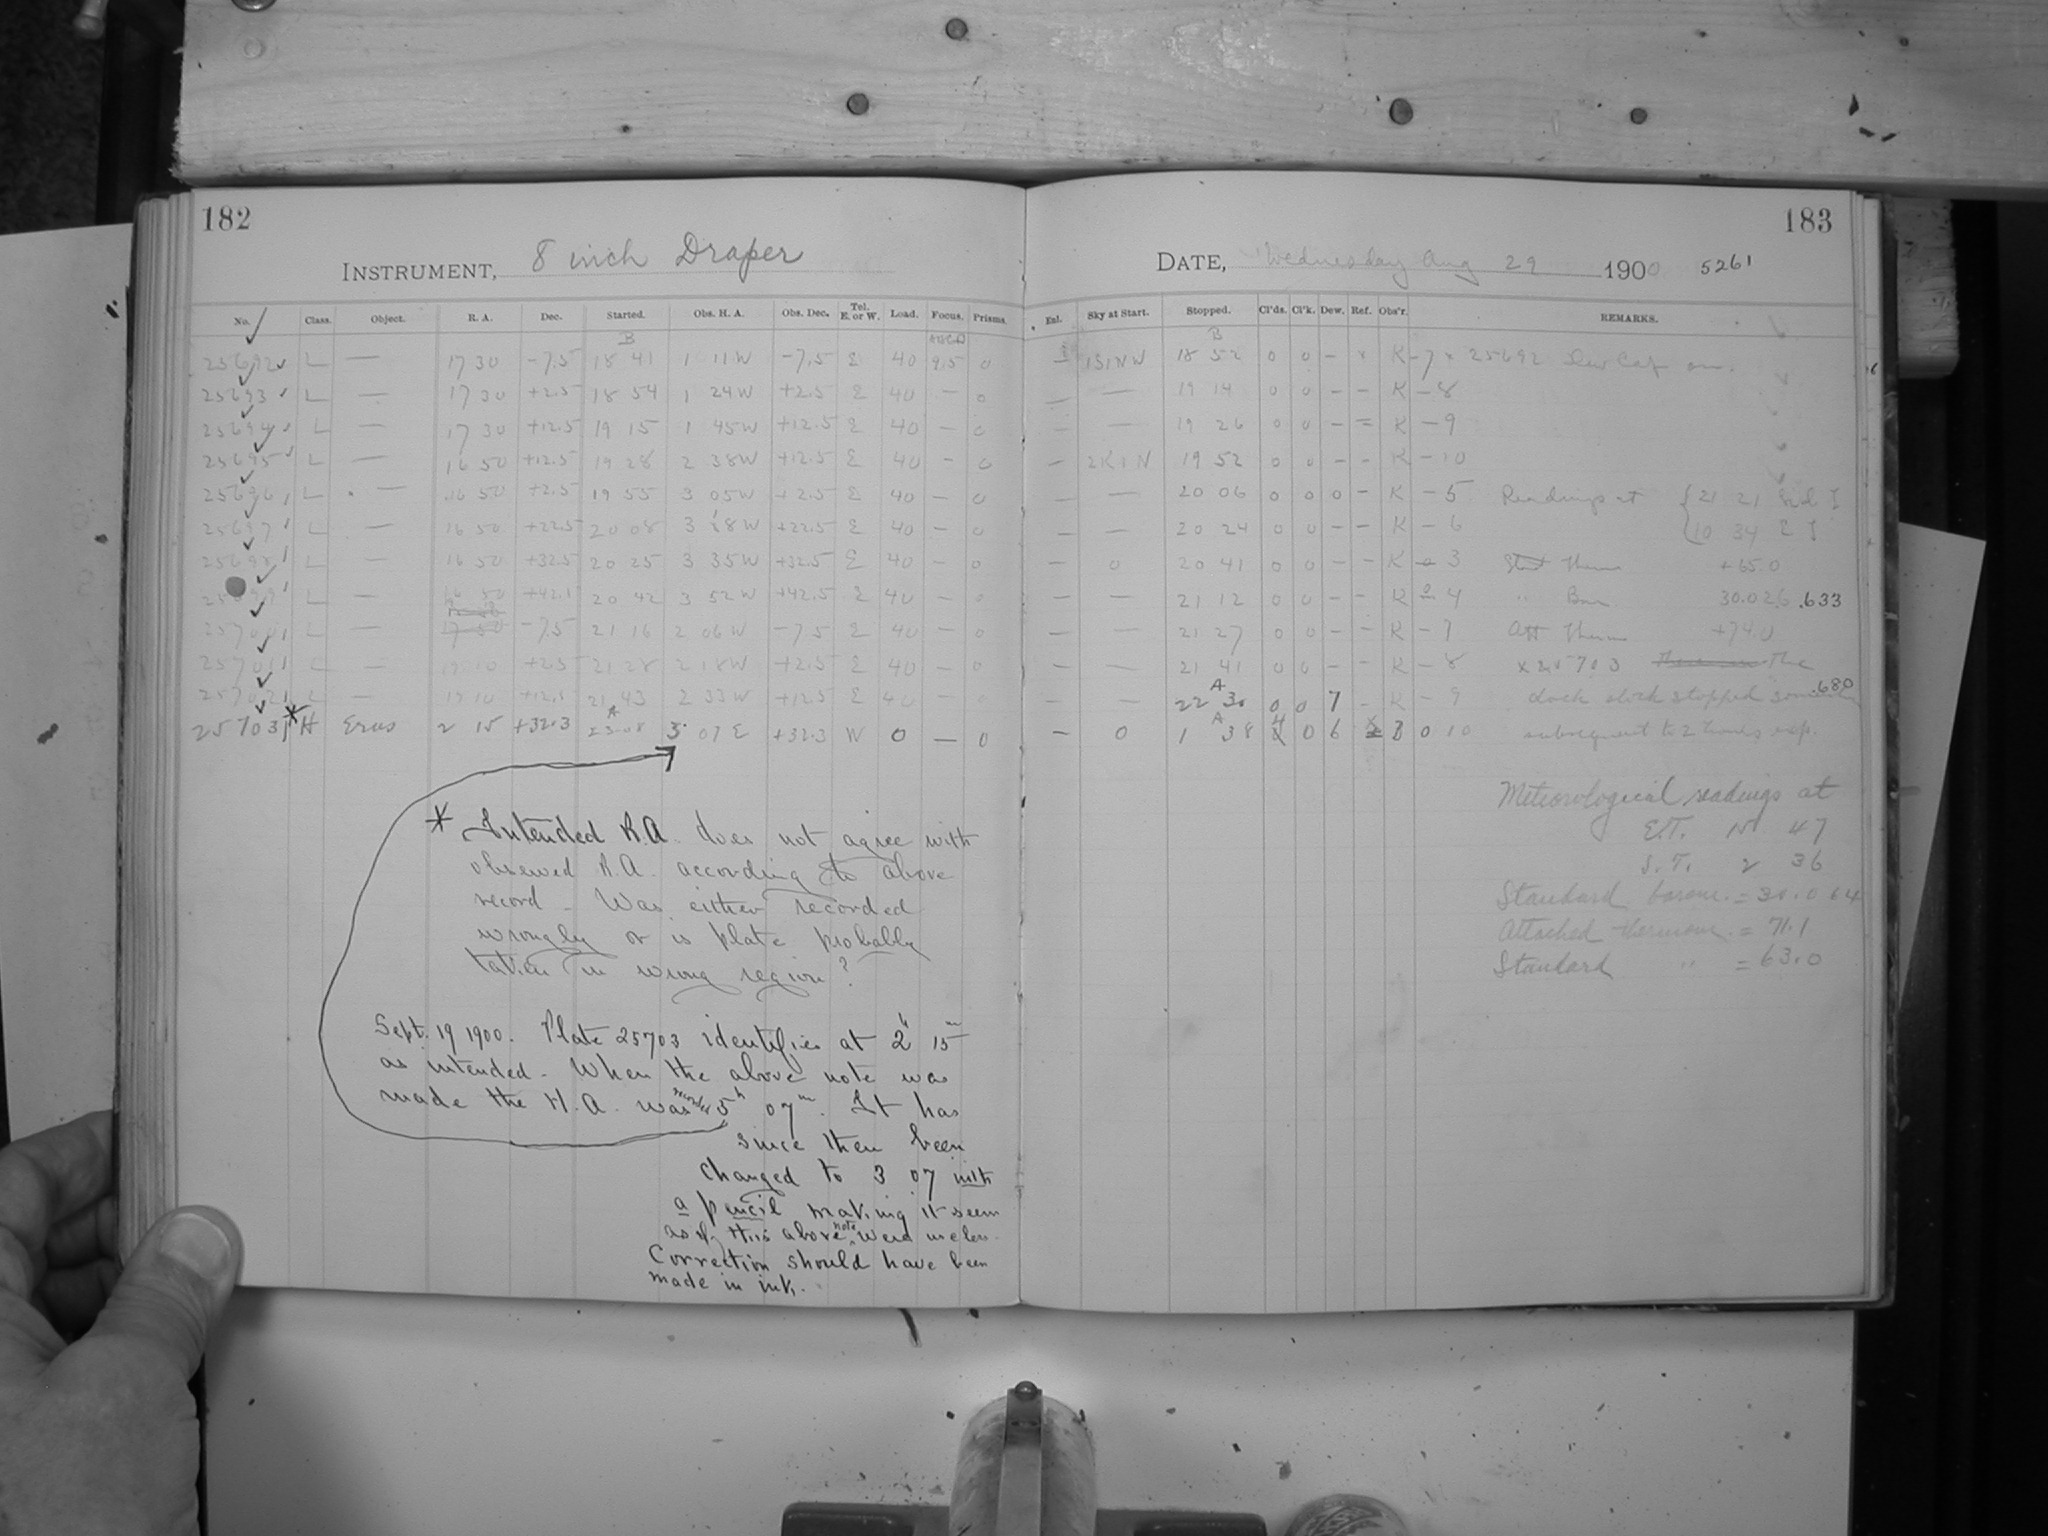 182
INSTRUMENT, 8 inch Draper
No. Class. Object. R. A. Dec. Started. Obs. H. A. Obs. Dec. Tel. E. or W. Load. Focus. Prisms.
B
25692 L — 17 30 -7.5 18 41 1 11W -7.5 E 40 9.5 0
25693 L — 17 30 +2.5 18 54 1 24W +2.5 E 40 — 0
25694 L — 17 30 +12.5 19 15 1 45W +12.5 E 40 — 0
25695 L — 16 50 +12.5 19 28 2 38W +12.5 E 40 — 0
25696 L — 16 50 +2.5 19 55 3 05W +2.5 E 40 — 0
25697 L — 16 50 +22.5 20 08 3 18W +22.5 E 40 — 0
25698 L — 16 50 +32.5 20 25 3 35W +32.5 E 40 — 0
L — 16 50 20 42 3 52W +42.5 E 40 — 0
25700 L — -7.5 21 16 2 06W -7.5 E 40 — 0
25701 L — 19 10 +2.5 21 28 2 18W +2.5 E 40 — 0
25702 L — 19 10 +12.5 21 43 2 33W +12.5 E 40 — 0
A
25703 * H Eros 2 15 +32.3 23 08 07 E +32.3 W 0 — 0
* Intended R.A. does not agree with
observed R.A. according to above
record - Was either recorded
wrongly or is plate probably
taken in wrong region?
Sept. 19 1900. Plate 25703 identifies at 2h 15m
as intended - When the above note was
made the H.A. was recorded 5h 07m. It has
since then been
changed to 3 07 with
a pencil making it seem
as if this above note were useless.
Correction should have been
made in ink.
183
DATE, Wednesday Aug 29 1900 5261
Enl. Sky at Start. Stopped. Cl'ds. Cl'k. Dew. Ref. Obs'r. REMARKS.
B
— 1S1NW 18 52 0 0 - x K - 7 x 25692 Dew Cap on.
— — 19 14 0 0 - - K - 8
— — 19 26 0 0 - = K - 9
— 2K1N 19 52 0 0 - - K - 10
— — 20 06 0 0 0 - K - 5 Readings at { 21 21
— — 20 24 0 0 - - K - 6 { 10 34
— 0 20 41 0 0 - - K 3 Therm +65.0
— — 21 12 0 0 - - K 4 " Bar 30.026 .633
— — 21 27 0 0 - - K - 7 Att Therm +74.0
— — 21 41 0 0 - - K - 8 x 25703 The
A
— — 22 30 0 0 7 - K - 9 clock stopped .680
A
— 0 1 38 0 6 B 0 10 subsequent to 2 hours exp.
Meteorological readings at
E.T. 15 47
S.T. 2 36
Standard barom. = 30.064
Attached thermom. = 71.1
Standard " = 63.0